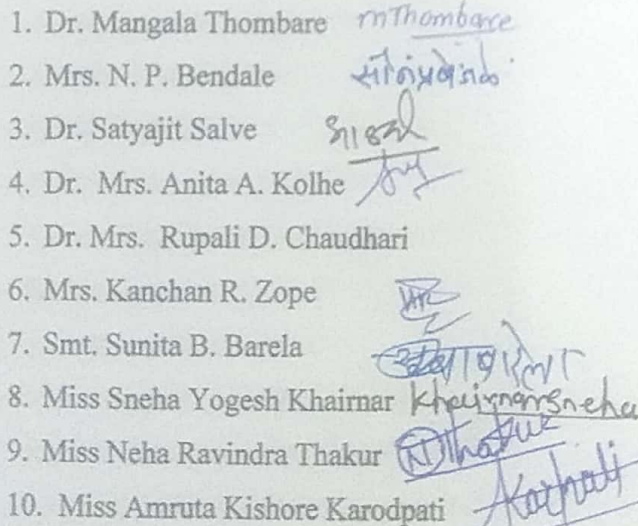 1. Dr. Mangala Thombare mThombare
2. Mrs. N. P. Bendale
3. Dr. Satyajit Salve
4. Dr. Mrs. Anita A. Kolhe
5. Dr. Mrs. Rupali D. Chaudhari
6. Mrs. Kanchan R. Zope
7. Smt. Sunita B. Barela
8. Miss Sneha Yogesh Khairnar KhairnarSneha
9. Miss Neha Ravindra Thakur NThakur
10. Miss Amruta Kishore Karodpati